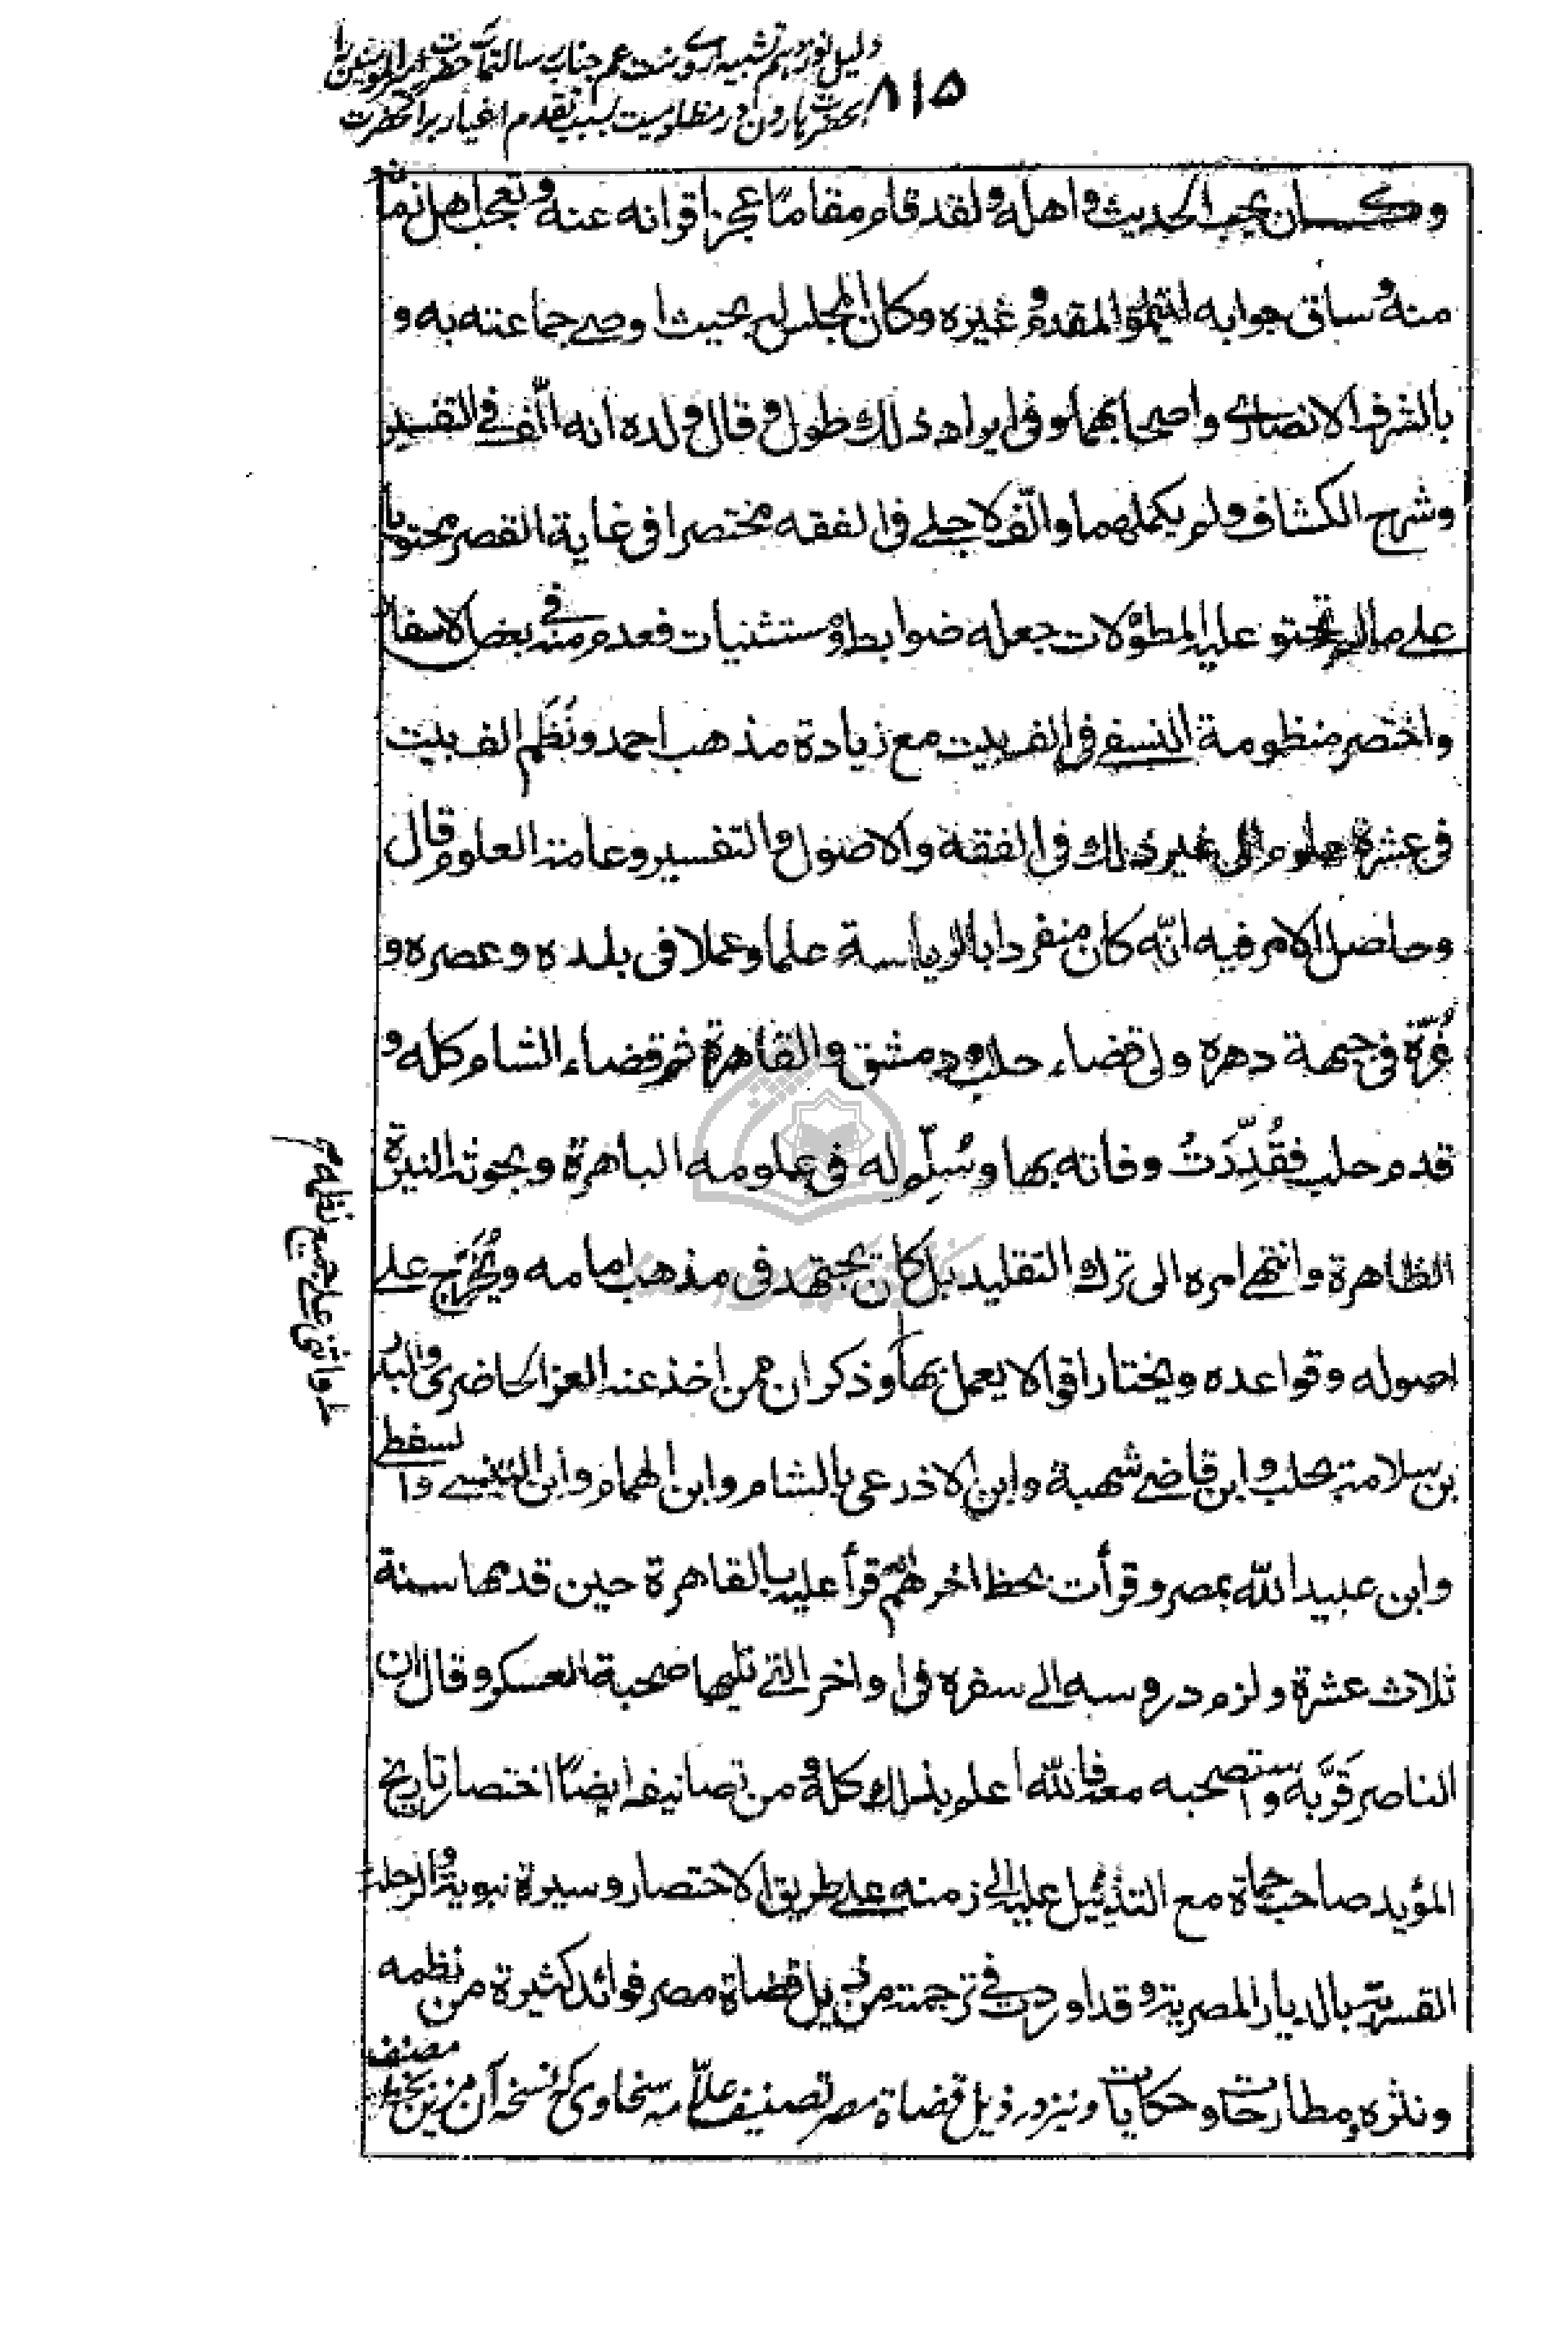 دلیل نوزدهم تشبیه اروست عم جناب رسالتمآب حضرت امیرالمومنین را
۸۱۵
بحضرت هارون در مظلومیت بسبب تقدم اغیار بر آنحضرت
وكان يحب الحديث و اهله و لقد قام مقاما عجز اقرانه عنه و تعجب اهل زمانه
منه و ساق جوابه لتيمور المقدم و غيره و كان المجلس له بحيث اوصى جماعته به و
بالشرف الانصارى و اصحابهما و فى ايراد ذلك طول و قال ولده انه الّف فى التفسير
و شرح الكشاف و لم يكملهما و الّف لاجلى فى الفقه مختصرا فى غاية القصر محتويا
على ما لم تحتو عليه المطولات جعله ضوابط و مستثنيات فعدم منه فى بعض الاسفار
و اختصر منظومة النسفى فى الف بيت مع زيادة مذهب احمد و نَظَم الف بيت
فى عشرة علوم الى غير ذلك فى الفقه و الاصول و التفسير و عامة العلوم قال
و حاصل الامر فيه انّه كان منفردا بالرياسة علما و عملا فى بلده و عصره و
غُرّة فى جبهة دهره ولى قضاء حلب و دمشق و القاهرة ثم قضاء الشام كله و
قدم حلب فقُدِّرَتْ وفاته بها و سُلِّم له فى علومه الباهرة و بحوثه النيرة
الظاهرة و انتهى امره الى ترك التقليد بل كان يجتهد فى مذهب امامه و يُخَرِّج على
اصوله و قواعده و يختار اقوالا يعمل بها و ذكر ان ممن اخذ عنه العز الحاضرى و البدر
بن سلامة بحلب و ابن قاضى شهبة و ابن الاذرعى بالشام و ابن الهمام و ابن التنسى و السفطى
و ابن عبيد الله بمصر و قرأت بخط اخرهم قرأ عليه بالقاهرة حين قدمها سنة
ثلاث عشرة و لزم دروسه الى سفره فى اواخر التى تليها صحبة العسكر و قال ان
الناصر قَرَّبه و استصحبه معه فالله اعلم بذلك كله و من تصانيفه ايضًا اختصار تاريخ
المؤيد صاحب حماة مع التذييل عليه الى زمنه على طريق الاختصار و سيرة نبوية و الرحلة
القسرية بالديار المصرية و قد اوردت فى ترجمته من ذيل قضاة مصر فوائد كثيرة من نظمه
و نثره و مطارحات و حكايات و نيز در ذيل قضاة مصر تصنيف علّامه سخاوى كه نسخه آن مزين بخط مصنف